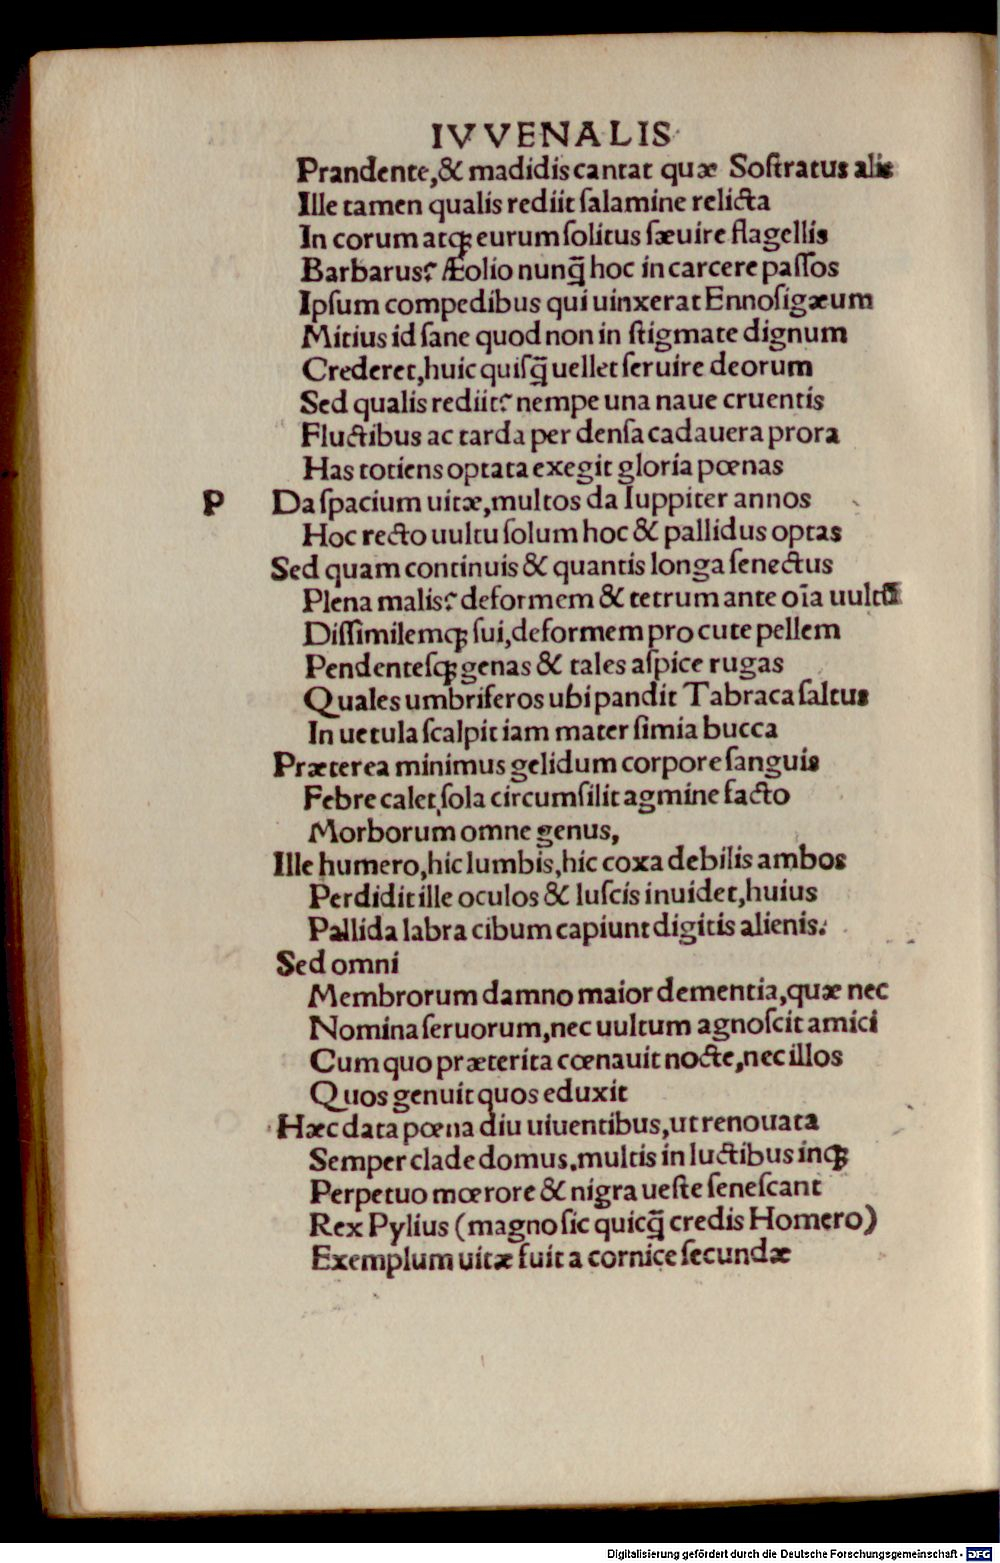 IVVENALIS
Prandente,& madidis cantat quæ Soſtratus alis
Ille tamen qualis rediit ſalamine relicta
In corum atq; eurum ſolitus ſæuire flagellis
Barbarus? Æolio nunq̃ hoc in carcere paſſos
Ipſum compedibus qui uinxerat Ennoſigæum
Mitius id ſane quod non in ſtigmate dignum
Crederet,huic quiſq̃ uellet ſeruire deorum
Sed qualis rediit? nempe una naue cruentis
Fluctibus ac tarda per denſa cadauera prora
Has totiens optata exegit gloria pœnas
P Da ſpacium uitæ,multos da Iuppiter annos
Hoc recto uultu ſolum hoc & pallidus optas
Sed quam continuis & quantis longa ſenectus
Plena malis? deformem & tetrum ante oĩa uultũ
Diſſimilemq; ſui,deformem pro cute pellem
Pendenteſq; genas & tales aſpice rugas
Quales umbriferos ubi pandit Tabraca ſaltus
In uetula ſcalpit iam mater ſimia bucca
Præterea minimus gelidum corpore ſanguis
Febre calet,ſola circumſilit agmine facto
Morborum omne genus,
Ille humero,hic lumbis,hic coxa debilis ambos
Perdidit ille oculos & luſcis inuidet,huius
Pallida labra cibum capiunt digitis alienis.
Sed omni
Membrorum damno maior dementia,quæ nec
Nomina ſeruorum,nec uultum agnoſcit amici
Cum quo præterita cœnauit nocte,nec illos
Quos genuit quos eduxit
Hæc data pœna diu uiuentibus,ut renouata
Semper clade domus.multis in luctibus inq;
Perpetuo mœrore & nigra ueſte ſeneſcant
Rex Pylius (magno ſic quicq̃ credis Homero)
Exemplum uitæ fuit a cornice ſecundæ
Digitalisierung gefördert durch die Deutsche Forschungsgemeinschaft - DFG